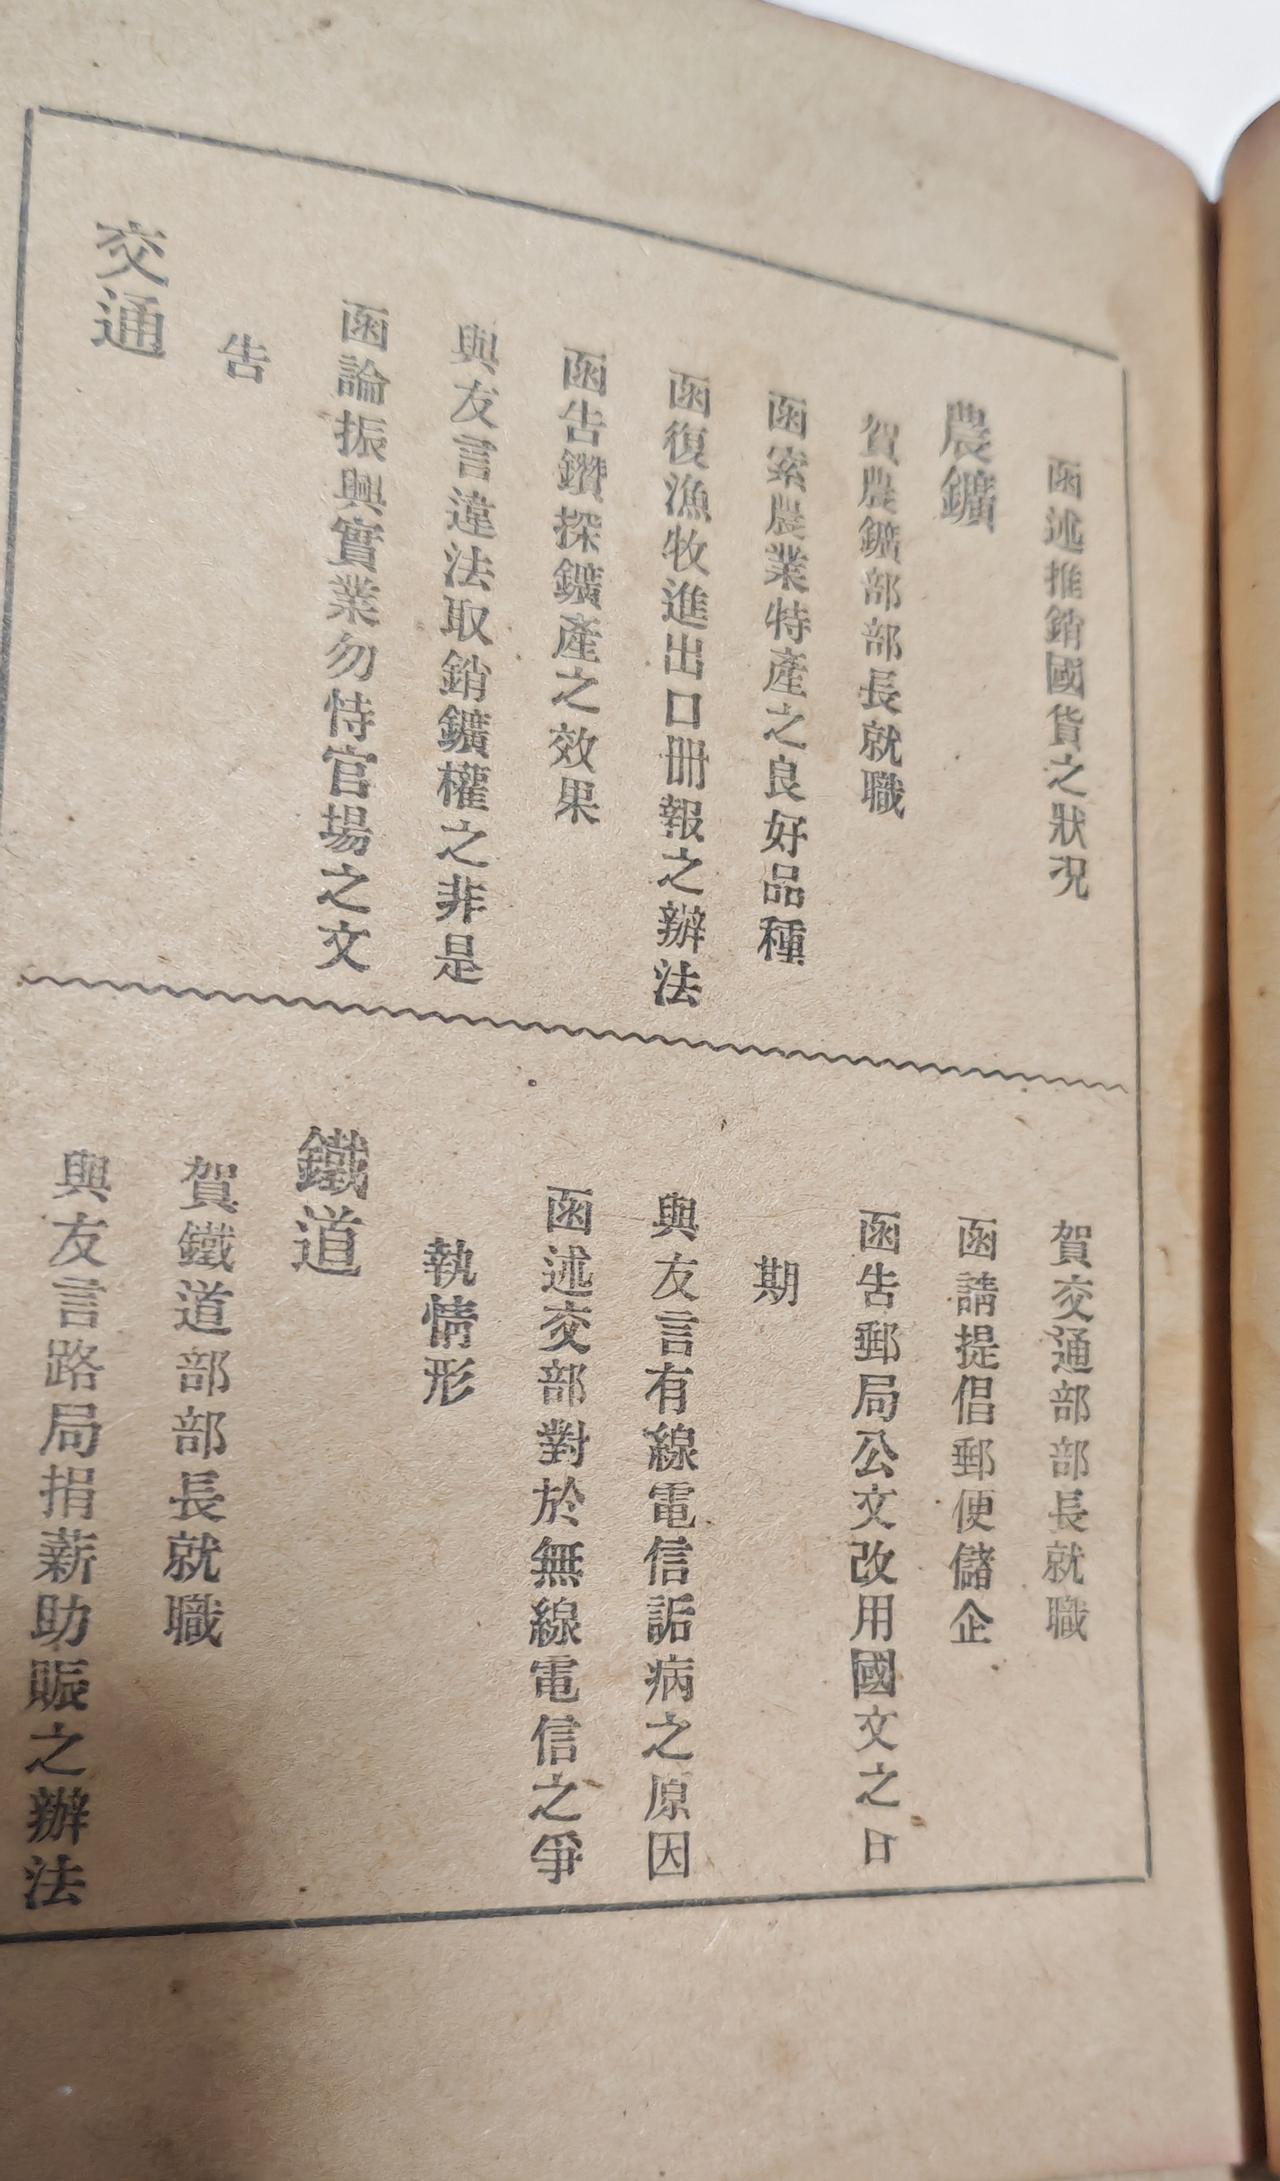 函述推銷國貨之狀況
農鑛
賀農鑛部部長就職
函索農業特產之良好品種
函復漁牧進出口冊報之辦法
函告鑽探鑛產之效果
與友言違法取銷鑛權之非是
函論振興實業勿恃官場之文
告
交通
賀交通部部長就職
函請提倡郵便儲企
函告郵局公文改用國文之日
期
與友言有線電信詬病之原因
函述交部對於無線電信之爭
執情形
鐵道
賀鐵道部部長就職
與友言路局捐薪助賑之辦法